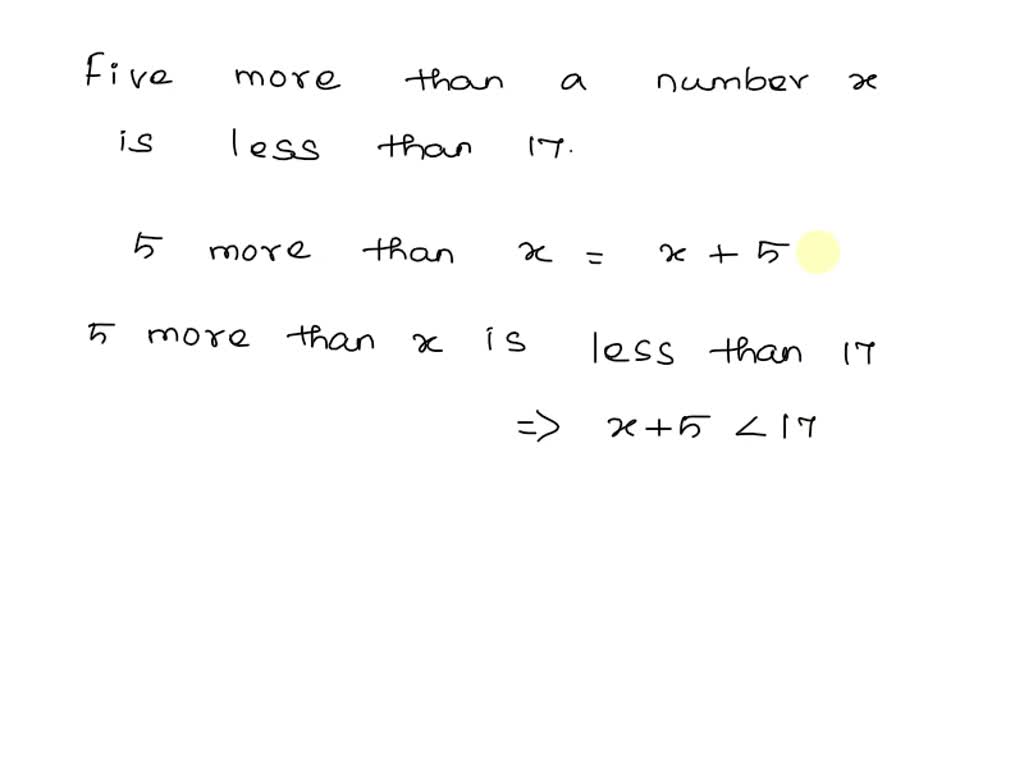 Five more than a number x
is less than 17.
5 more than x = x + 5
5 more than x is less than 17
=> x+5 < 17